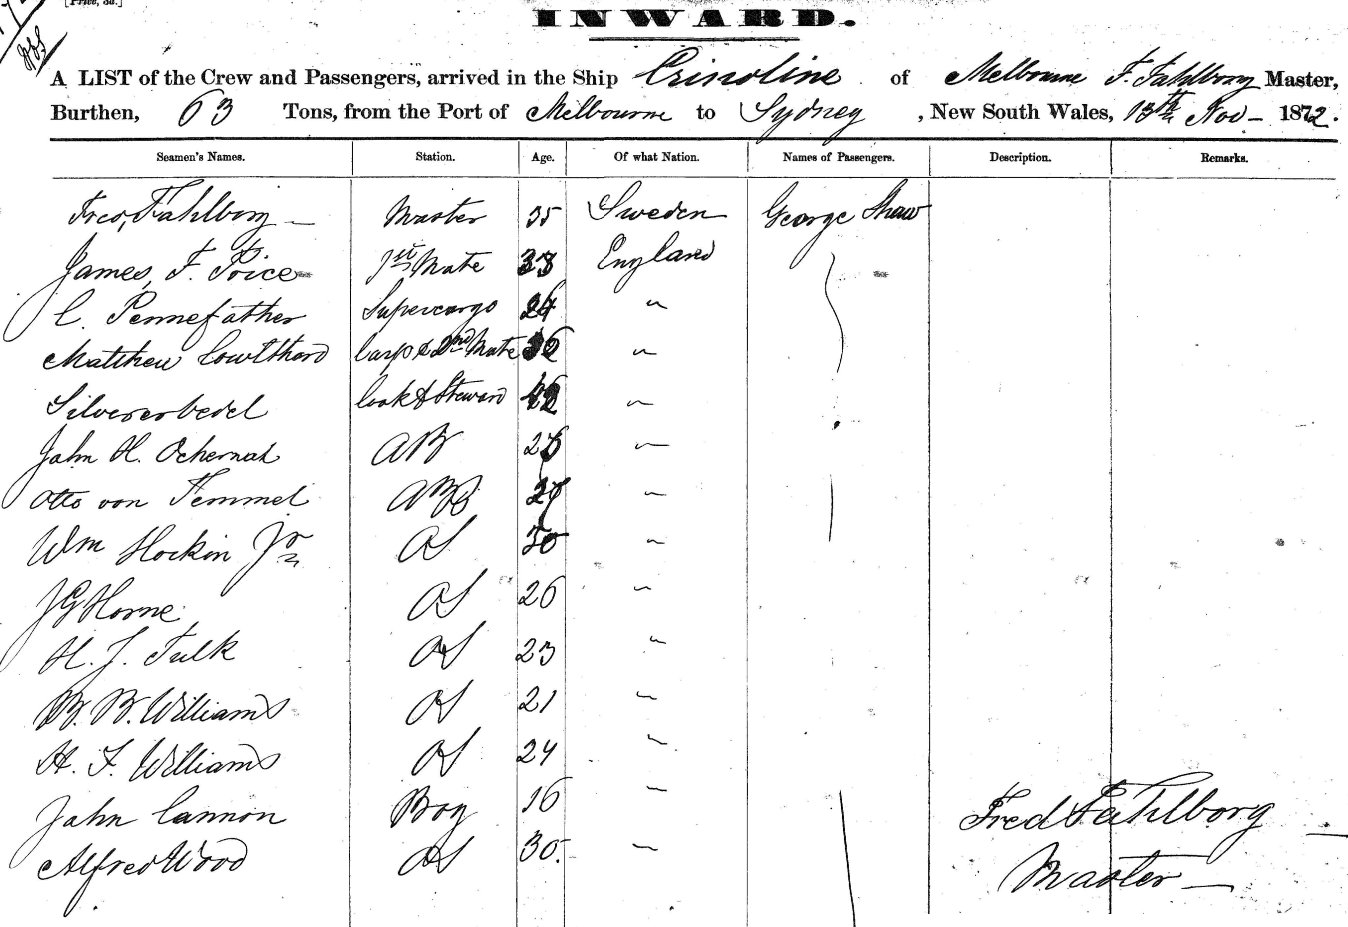 [Price, 3d.]
INWARD.
A LIST of the Crew and Passengers, arrived in the Ship Crinoline of Melbourne F. Fahlborg Master,
Burthen, 63 Tons, from the Port of Melbourne to Sydney, New South Wales, 13th Nov - 1872.
Seamen's Names. Station. Age. Of what Nation. Names of Passengers. Description. Remarks.
Fred, Fahlborg — Master 35 Sweden George Shaw
James, F. Price 1st Mate England
C. Pennefather Supercargo "
Matthew Carp & 2nd Mate "
Cook & Steward "
John H. AB "
Otto von AB "
Wm Hockin Jr OS "
J G Horne OS 26 "
H. J. Tulk OS 23 "
B. B. Williams OS 21 "
H. F. Williams OS 24 "
John Cannon Boy 16 "
Alfred Wood OS 30. "
Fred Fahlborg —
Master —